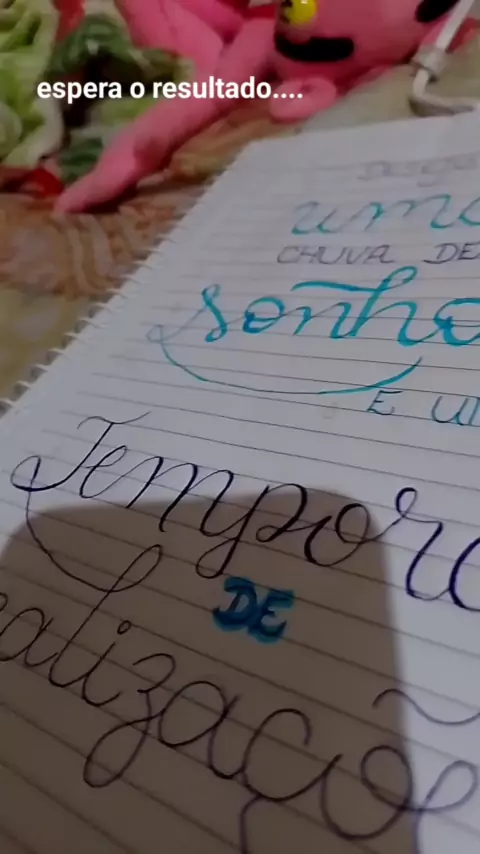 espera o resultado....
uma
CHUVA DE
sonho
E U
Tempora
DE
alizaçõe